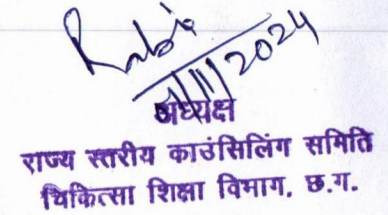 /11/2024
अध्यक्ष
राज्य स्तरीय काउंसिलिंग समिति
चिकित्सा शिक्षा विभाग. छ.ग.